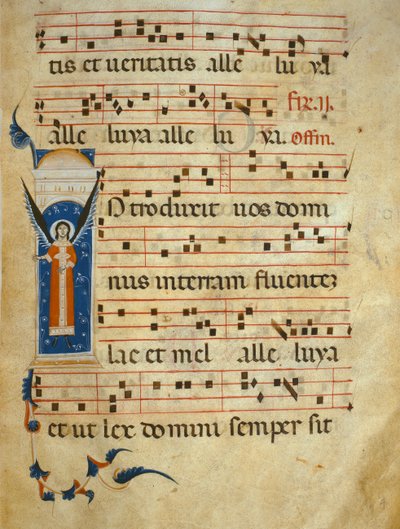 tis et ueritatis alle lu ya
fir. ij.
alle luya alle lu ya. Offm.
INtroduxit uos domi
nus interram fluentez
lac et mel alle luya
et ut lex domini semper sit